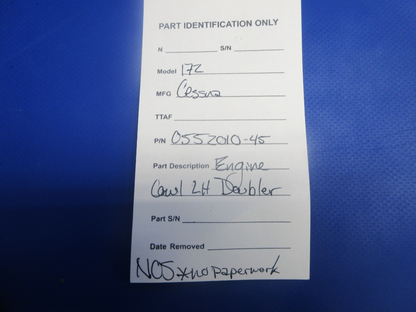 PART IDENTIFICATION ONLY
N ____________ S/N ____________
Model 172
MFG Cessna
TTAF ____________
P/N 0552010-45
Part Description Engine
Cowl LH Doubler
Part S/N ____________
Date Removed ____________
NOS *no paperwork